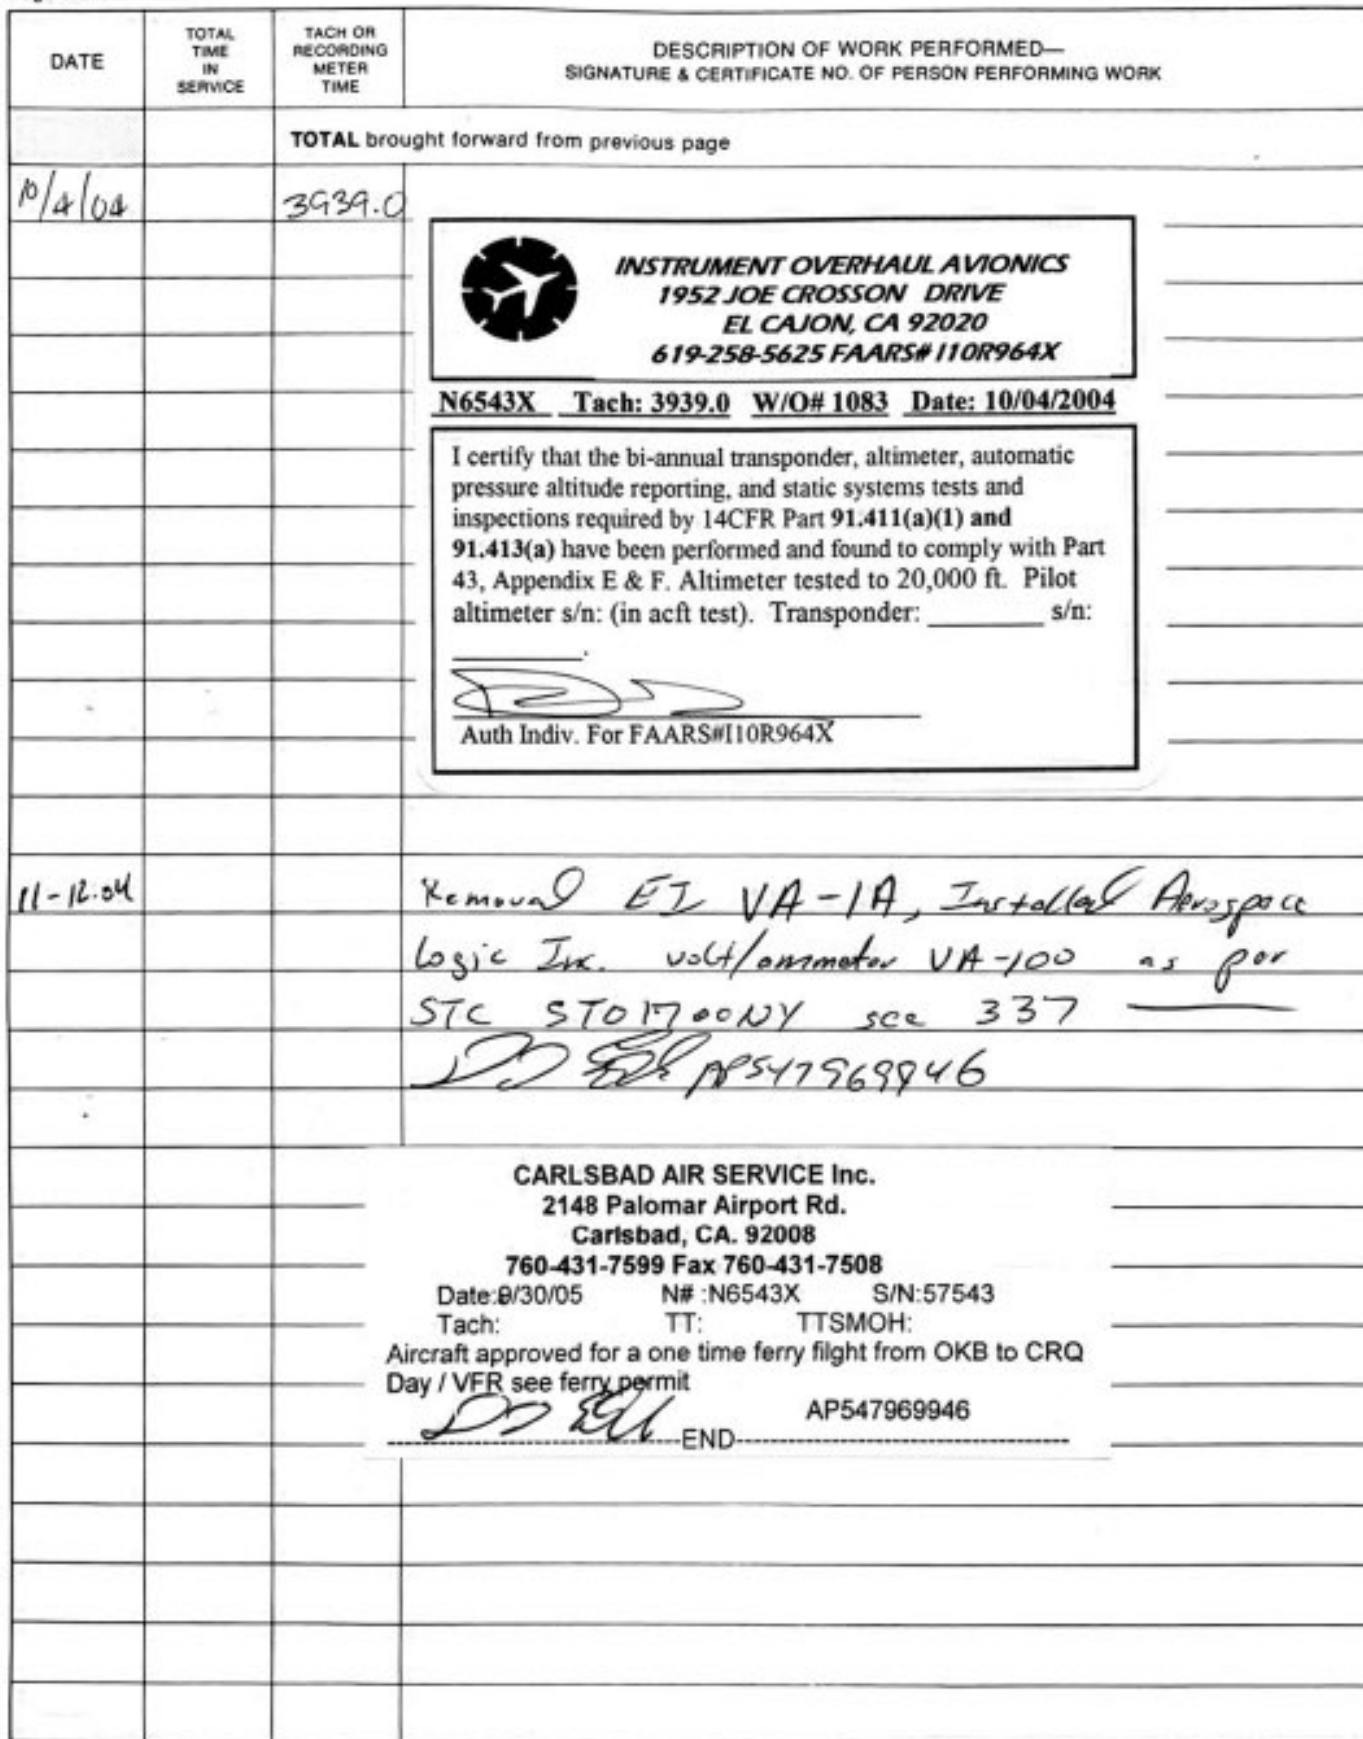 DATE
TOTAL
TIME
IN
SERVICE
TACH OR
RECORDING
METER
TIME
DESCRIPTION OF WORK PERFORMED—
SIGNATURE & CERTIFICATE NO. OF PERSON PERFORMING WORK
TOTAL brought forward from previous page
10/4/04 3939.0
INSTRUMENT OVERHAUL AVIONICS
1952 JOE CROSSON DRIVE
EL CAJON, CA 92020
619-258-5625 FAARS# I10R964X
N6543X Tach: 3939.0 W/O# 1083 Date: 10/04/2004
I certify that the bi-annual transponder, altimeter, automatic
pressure altitude reporting, and static systems tests and
inspections required by 14CFR Part 91.411(a)(1) and
91.413(a) have been performed and found to comply with Part
43, Appendix E & F. Altimeter tested to 20,000 ft. Pilot
altimeter s/n: (in acft test). Transponder: ________ s/n:
________.
Auth Indiv. For FAARS#I10R964X
11-12-04 Removed EI VA-1A, Installed Aerospace
Logic Inc. volt/ammeter VA-100 as per
STC ST01700NY see 337
AP547969946
CARLSBAD AIR SERVICE Inc.
2148 Palomar Airport Rd.
Carlsbad, CA. 92008
760-431-7599 Fax 760-431-7508
Date:9/30/05 N# :N6543X S/N:57543
Tach: TT: TTSMOH:
Aircraft approved for a one time ferry filght from OKB to CRQ
Day / VFR see ferry permit
AP547969946
END